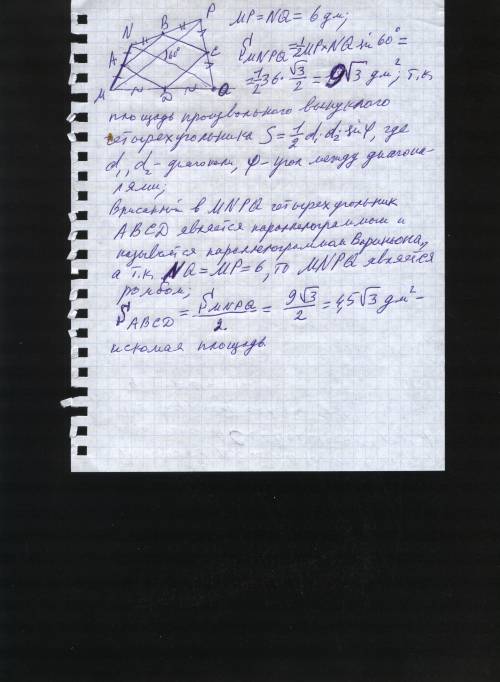 N B P
A 60° C
M D Q
MP = NQ = 6 дм;
S MNPQ = 1/2 MP × NQ sin 60° =
= 1/2 36 · √3/2 = 9√3 дм²; т.к.
площадь произвольного выпуклого
четырехугольника S = 1/2 d₁ d₂ sin φ, где
d₁, d₂ - диагонали, φ - угол между диагона-
лями;
Вписанный в MNPQ четырехугольник
ABCD является параллелограммом и
называется параллелограммом Вариньона,
а т.к. NQ = MP = 6, то MNPQ является
ромбом;
S ABCD = S MNPQ / 2 = 9√3 / 2 = 4,5√3 дм² -
искомая площадь.